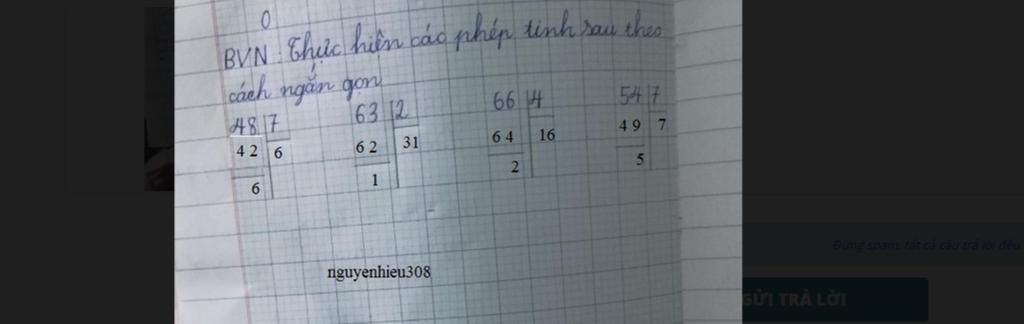 0
BVN: Thực hiện các phép tính sau theo
cách ngắn gọn
48 7 63 2 66 4 54 7
42 6 62 31 64 16 49 7
6 1 2 5
nguyenhieu308
Đừng spam, tất cả câu trả lời đều
GỬI TRẢ LỜI